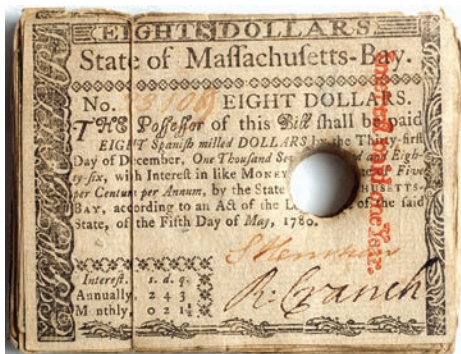 EIGHT DOLLARS.
State of Maſſachuſetts-Bay.
No. EIGHT DOLLARS.
THE Poſſeſſor of this Bill ſhall be paid
EIGHT Spaniſh milled DOLLARS by the Thirty-firſt
Day of December, One Thouſand and Eigh-
ty-ſix, with Intereſt in like MONEY of Five
per Centum per Annum, by the State
BAY, according to an Act of the of the ſaid
State, of the Fifth Day of May, 1780.
Intereſt. s. d. q.
Annually, 2 4 3
Monthly, 0 2 1½
R. Cranch
one Year.